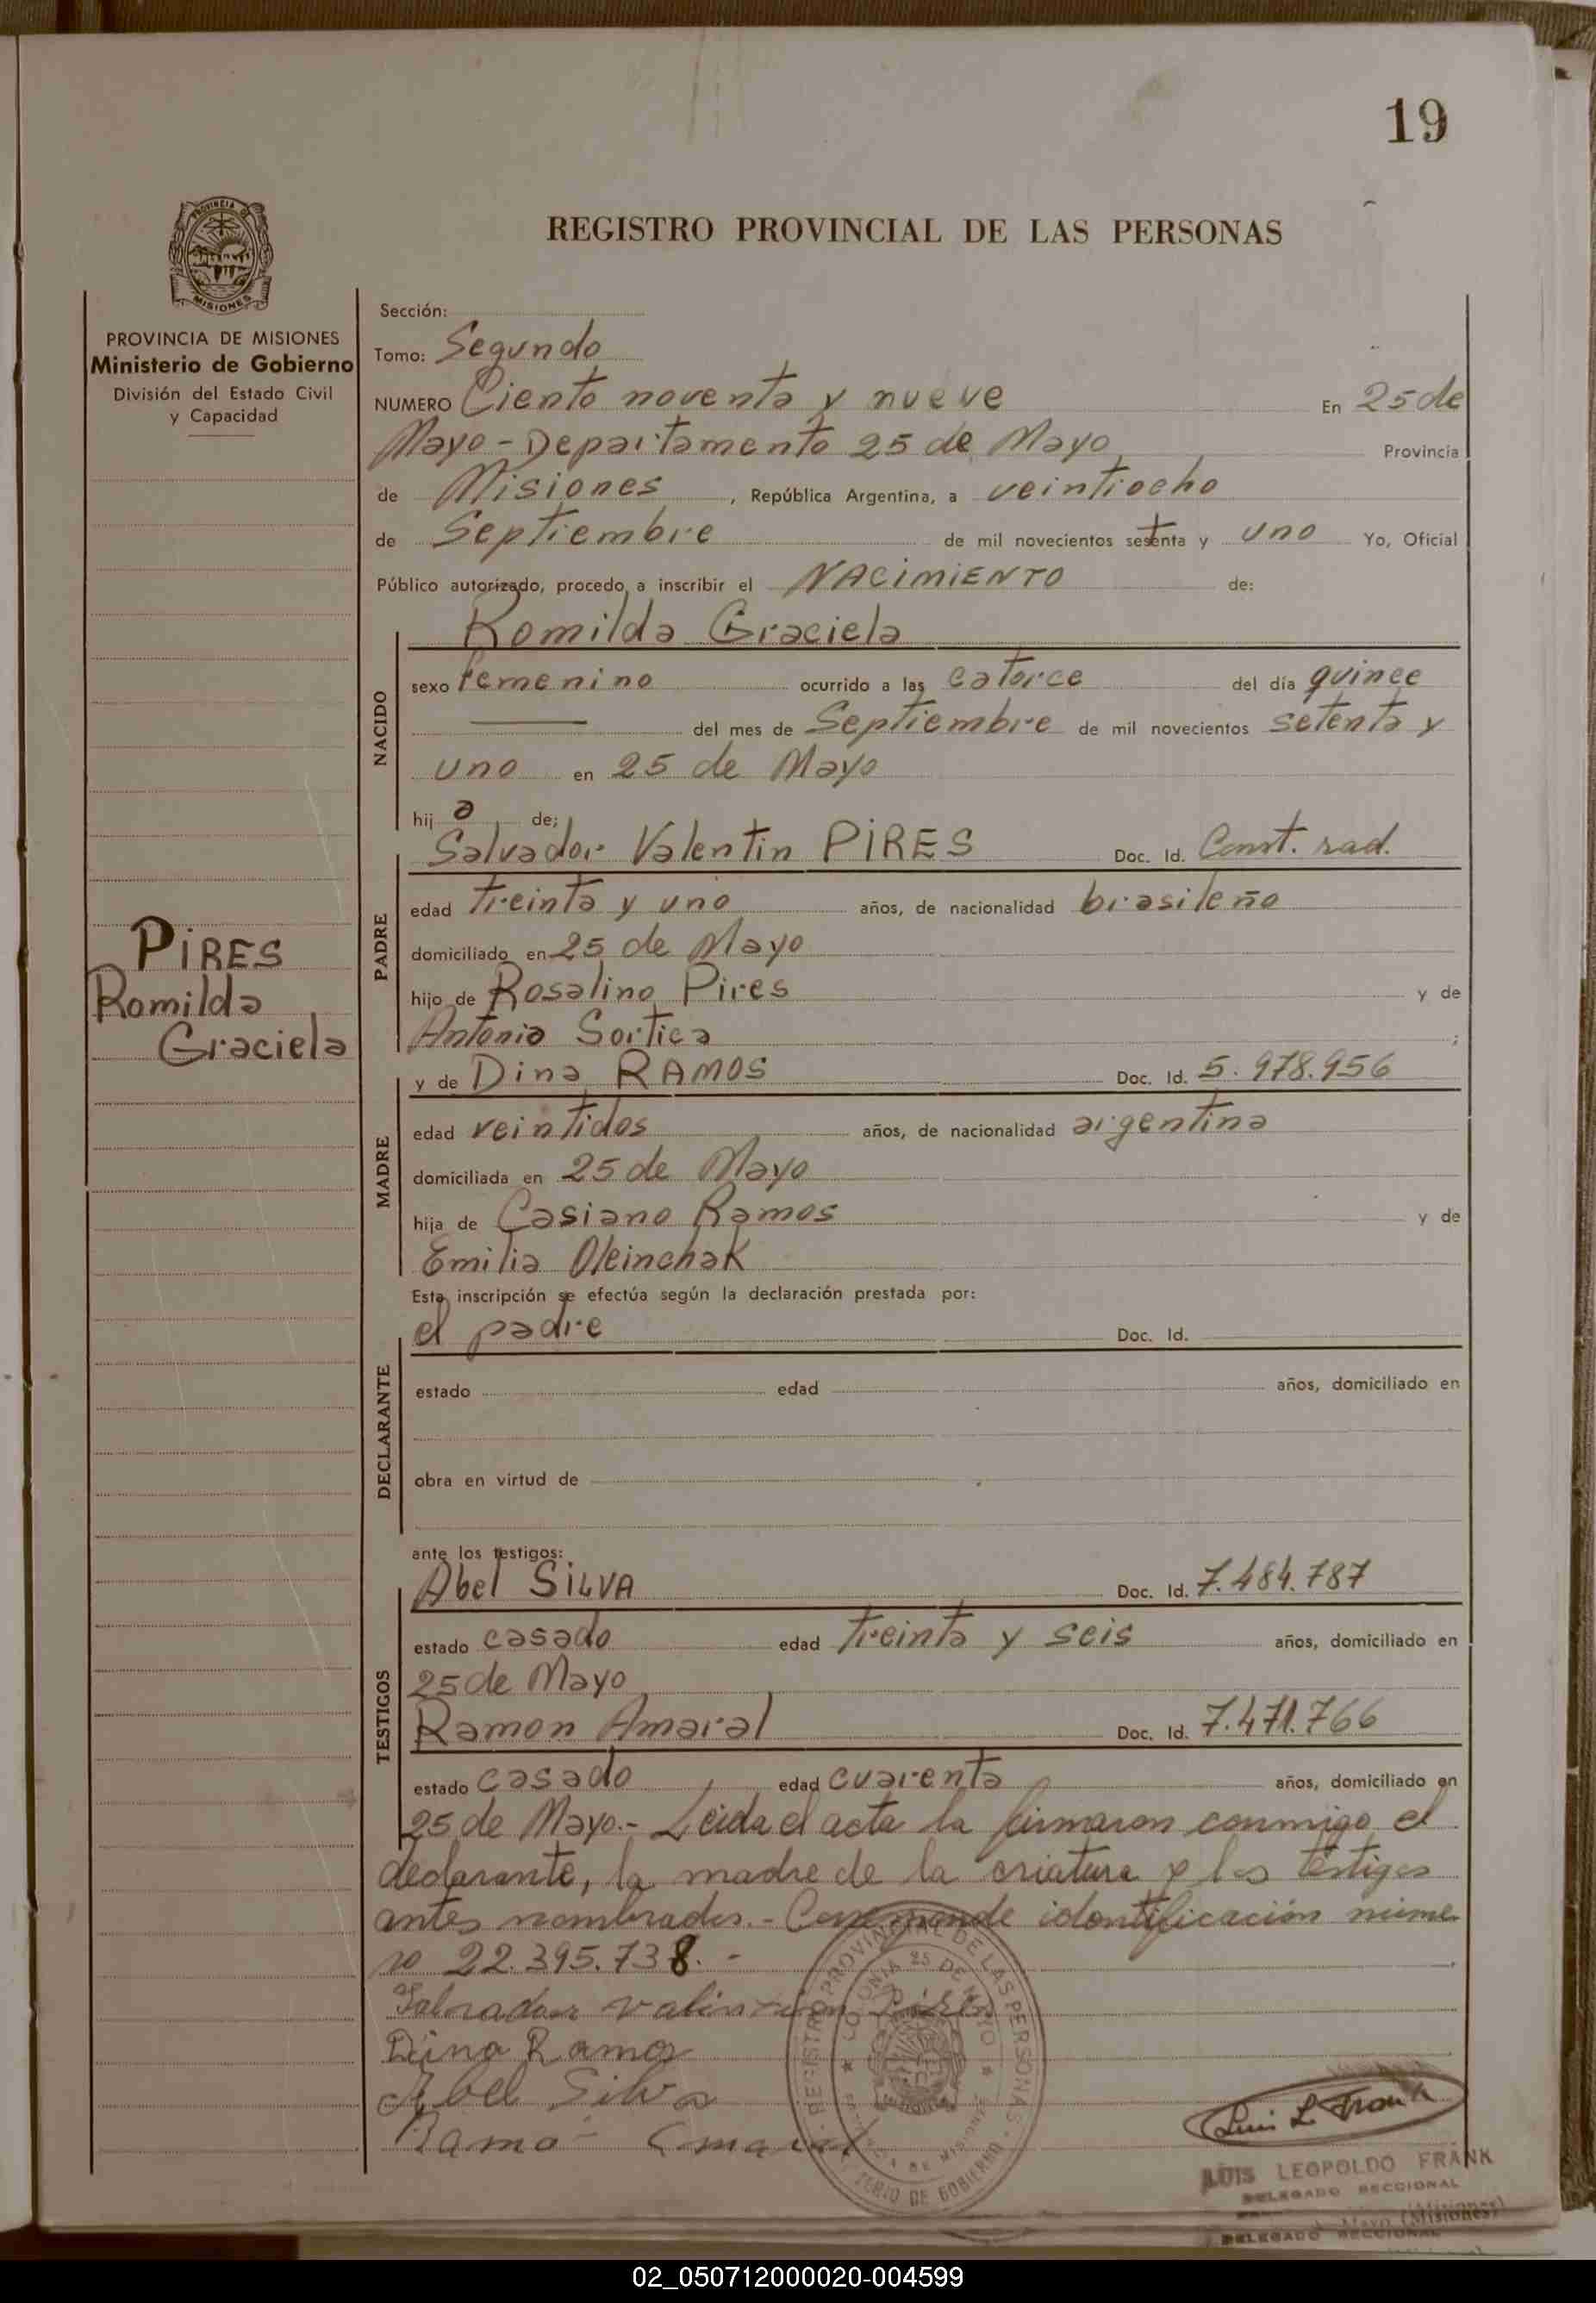 19
REGISTRO PROVINCIAL DE LAS PERSONAS
PROVINCIA DE MISIONES
PROVINCIA DE MISIONES
Ministerio de Gobierno
División del Estado Civil
y Capacidad
PIRES
Romilda
Graciela
Sección:
Tomo: Segundo
NUMERO Ciento noventa y nueve En 25 de
Mayo - Departamento 25 de Mayo Provincia
de Misiones, República Argentina, a veintiocho
de Septiembre de mil novecientos setenta y uno Yo, Oficial
Público autorizado, procedo a inscribir el NACIMIENTO de:
NACIDO
Romilda Graciela
sexo femenino ocurrido a las catorce del día quince
del mes de Septiembre de mil novecientos setenta y
uno en 25 de Mayo
hij a de;
PADRE
Salvador Valentin PIRES Doc. Id. Const. rad.
edad treinta y uno años, de nacionalidad brasileño
domiciliado en 25 de Mayo
hijo de Rosalino Pires y de
Antonia Sortica ;
MADRE
y de Dina RAMOS Doc. Id. 5.978.956
edad veintidos años, de nacionalidad argentina
domiciliada en 25 de Mayo
hija de Casiano Ramos y de
Emilia Oleinchak
Esta inscripción se efectúa según la declaración prestada por:
DECLARANTE
el padre Doc. Id.
estado edad años, domiciliado en
obra en virtud de
ante los testigos:
TESTIGOS
Abel SILVA Doc. Id. 7.484.787
estado casado edad treinta y seis años, domiciliado en
25 de Mayo
Ramon Amaral Doc. Id. 7.471.766
estado casado edad cuarenta años, domiciliado en
25 de Mayo.- Leida el acta la firmaron conmigo el
declarante, la madre de la criatura y los testigos
antes nombrados.- Corresponde identificación núme-
ro 22.395.738.-
Salvador Valentin Pires
Dina Ramos
Abel Silva
Ramo Amaral
REGISTRO PROVINCIAL DE LAS PERSONAS
COLONIA 25 DE MAYO
Luis L. Frank
LUIS LEOPOLDO FRANK
DELEGADO SECCIONAL
Mayo (Misiones)
DELEGADO SECCIONAL
02_050712000020-004599